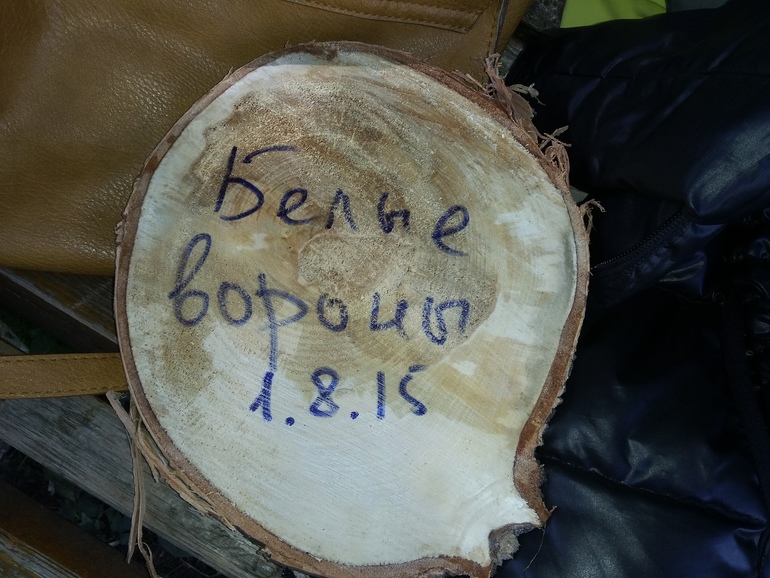 Белые
вороны
1.8.15